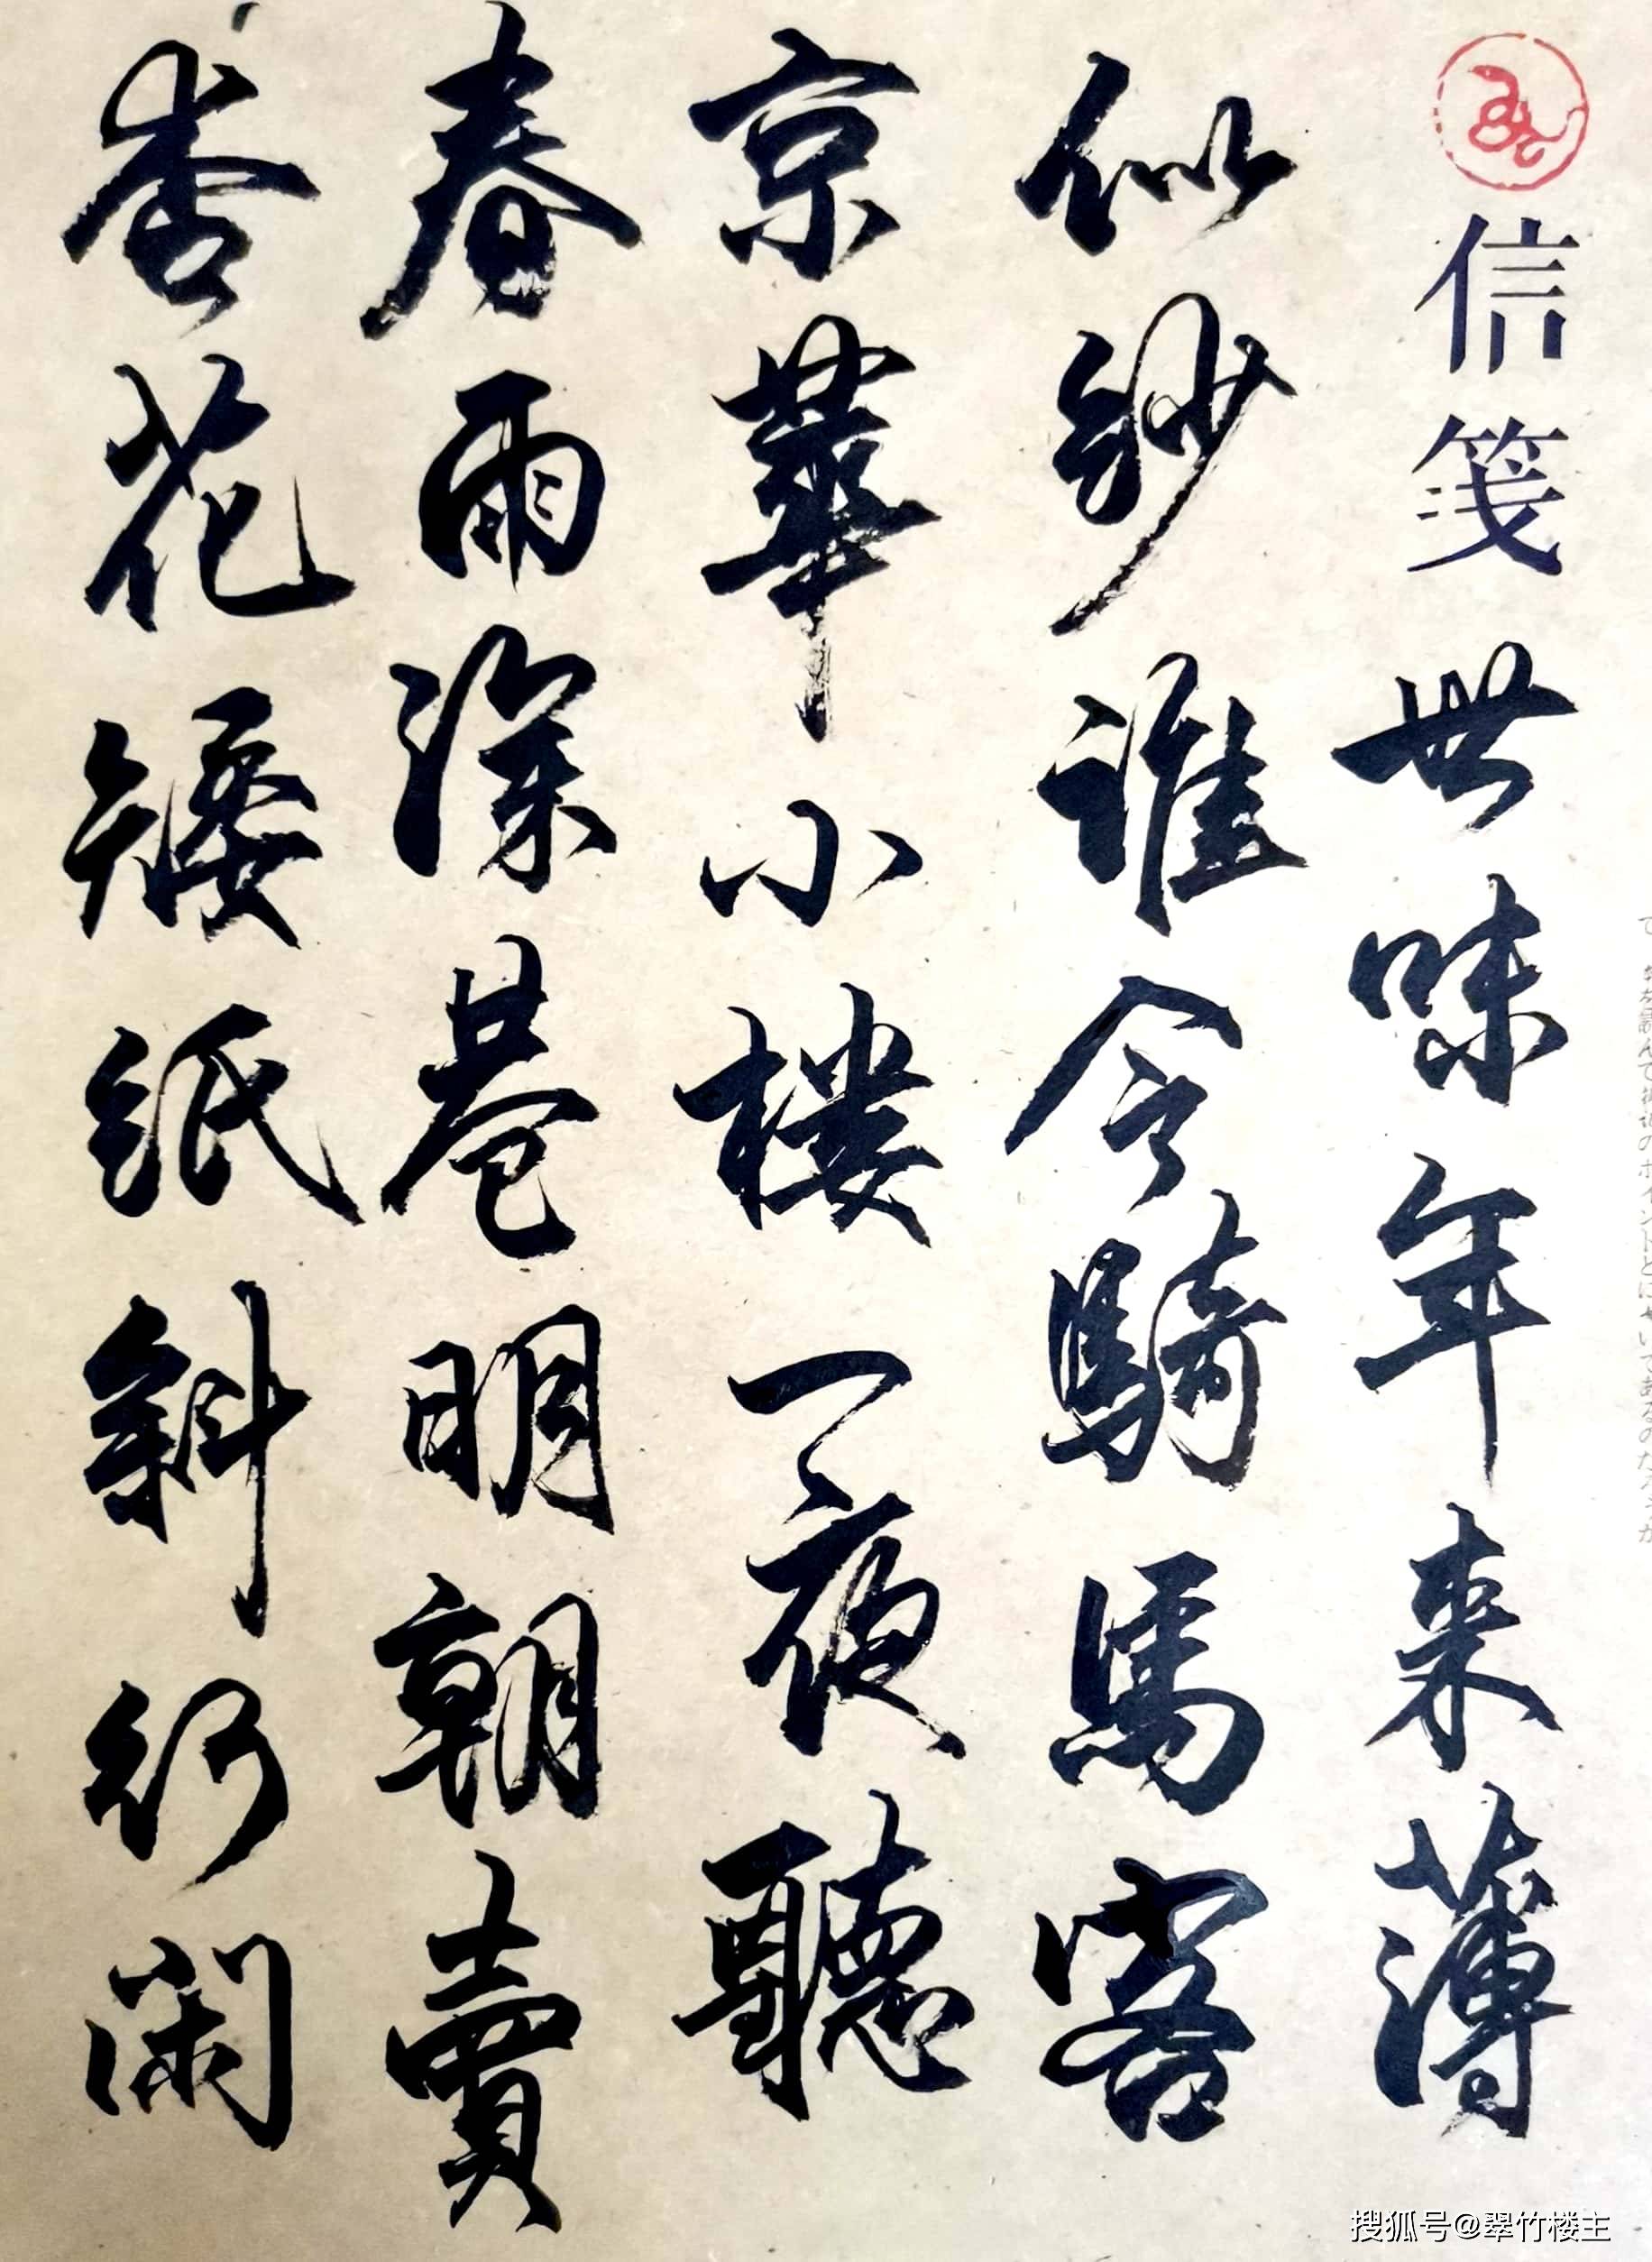 信笺
世味年来薄
似紗誰令騎馬客
京華小樓一夜聽
春雨深巷明朝賣
杏花矮紙斜行闲
搜狐号@翠竹楼主